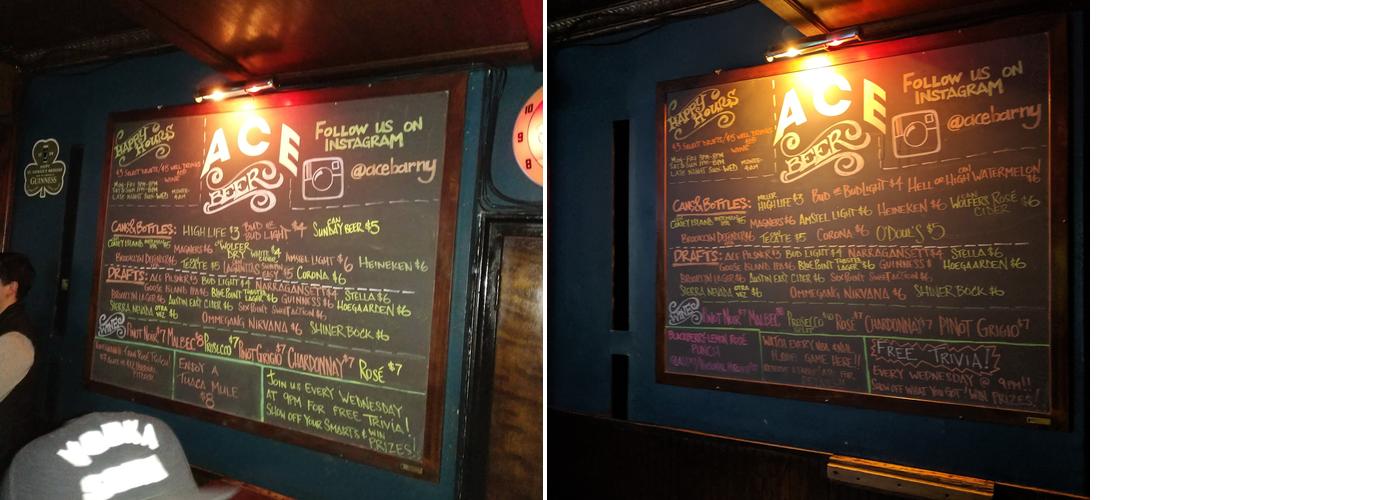 HAPPY HOURS
$3 SELECT DRAFTS/$5 WELL DRINKS
AND WINE
ACE
BEER
FOLLOW US ON
INSTAGRAM
@acebarny
GUINNESS
10
9
8
CANS & BOTTLES: HIGH LIFE $3 BUD OR BUD LIGHT $4 SUNDAY BEER CAN $5
CONEY ISLAND $5 MAGNERS $6 WOLFFER DRY WHITE CIDER AMSTEL LIGHT $6 HEINEKEN $6
BROOKLYN DEFENDER $6 TECATE $5 LAGUNITAS CORONA $6
DRAFTS: ACE PILSNER $3 BUD LIGHT $4 NARRAGANSETT $4 STELLA $6
GOOSE ISLAND IPA $6 BLUE POINT TOASTED LAGER $6 GUINNESS $6 HOEGAARDEN $6
BROOKLYN LAGER $6 AUSTIN EAST CIDER $6 SIXPOINT SWEET ACTION $6
SIERRA NEVADA OTRA VEZ $6 OMMEGANG NIRVANA $6 SHINER BOCK $6
WINES PINOT NOIR $7 MALBEC $8 PROSECCO $7 PINOT GRIGIO $7 CHARDONNAY $7 ROSÉ $7
ENJOY A
TUACA MULE
$8
JOIN US EVERY WEDNESDAY
AT 9PM FOR FREE TRIVIA!
SHOW OFF YOUR SMARTS & WIN
PRIZES!
VODKA
HAPPY HOURS
$3 SELECT DRAFTS/$5 WELL DRINKS
AND WINE
ACE
BEER
FOLLOW US ON
INSTAGRAM
@acebarny
CANS & BOTTLES: MILLER HIGH LIFE $3 BUD OR BUD LIGHT $4 HELL OR HIGH WATERMELON CAN $6
CONEY ISLAND $5 MAGNERS $6 AMSTEL LIGHT $6 HEINEKEN $6 WOLFFERS ROSÉ CIDER $6
BROOKLYN DEFENDER $6 TECATE $5 CORONA $6 O'DOUL'S $5
DRAFTS: ACE PILSNER $3 BUD LIGHT $4 NARRAGANSETT $4 STELLA $6
GOOSE ISLAND IPA $6 BLUE POINT TOASTED LAGER $6 GUINNESS $6 HOEGAARDEN $6
BROOKLYN LAGER $6 AUSTIN EAST CIDER $6 SIXPOINT SWEET ACTION $6
SIERRA NEVADA OTRA VEZ $6 OMMEGANG NIRVANA $6 SHINER BOCK $6
WINES PINOT NOIR $7 MALBEC $8 PROSECCO ROSÉ $7 CHARDONNAY $7 PINOT GRIGIO $7
BLACKBERRY-LEMON ROSÉ
PUNCH
WATCH EVERY NBA & NHL
PLAYOFF GAME HERE!!
FREE TRIVIA!
EVERY WEDNESDAY @ 9PM!!
SHOW OFF WHAT YOU GOT! WIN PRIZES!